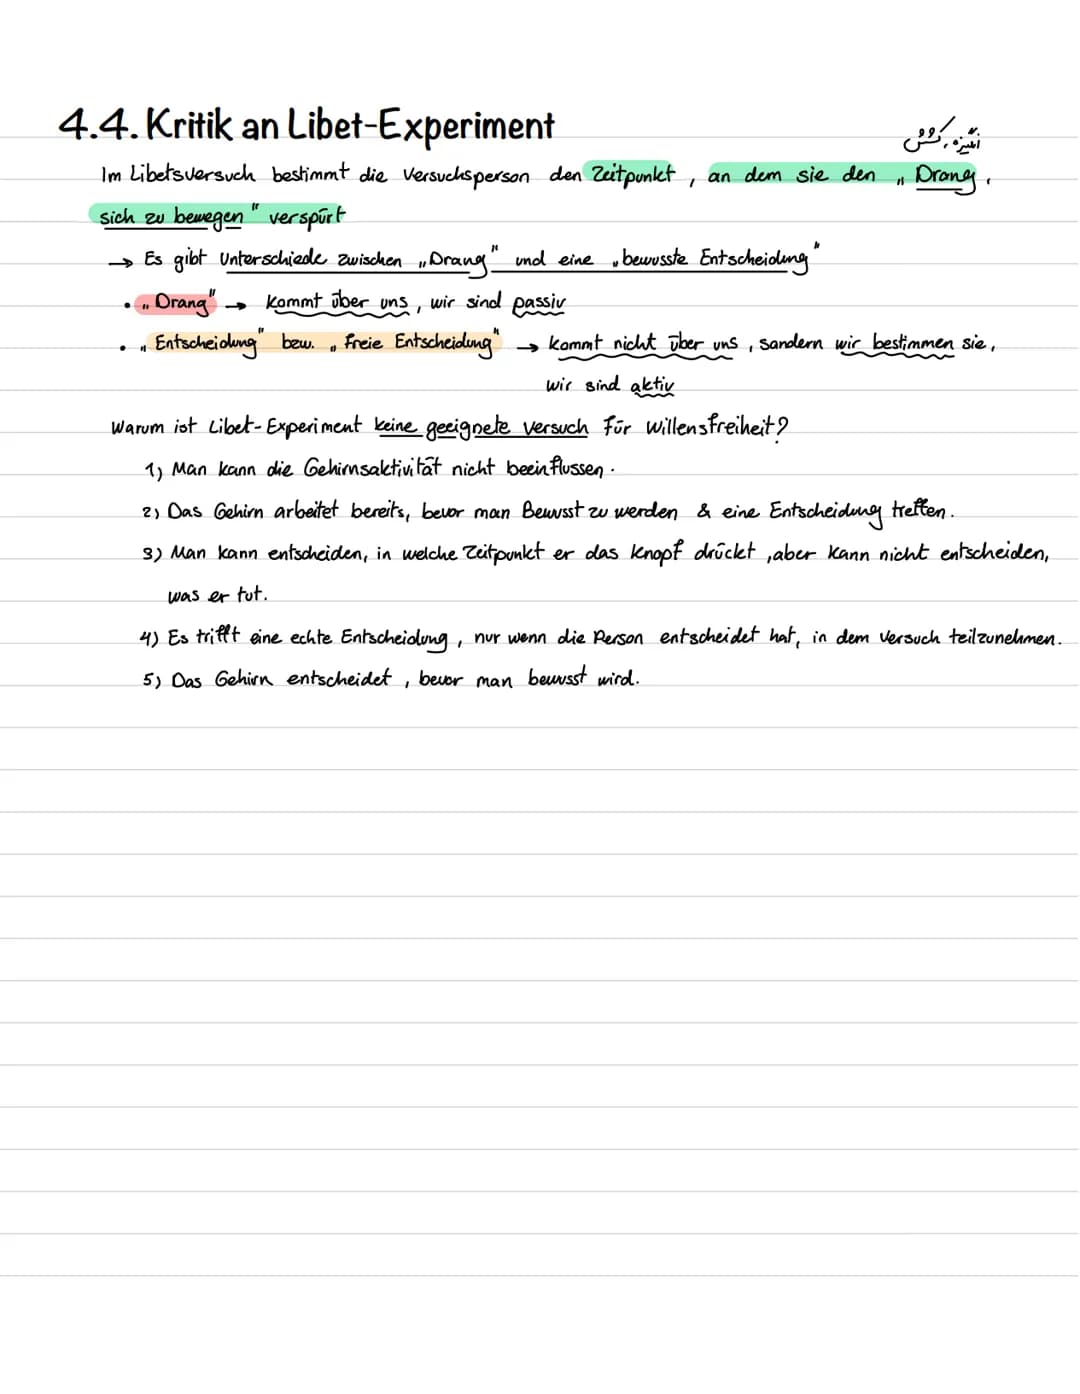 4.4. Kritik an Libet-Experiment
انگیزه، کشش
Im Libetsversuch bestimmt die Versuchsperson den Zeitpunkt, an dem sie den „Drang,
sich zu bewegen" verspürt
→ Es gibt Unterschiede zwischen „Drang" und eine „bewusste Entscheidung"
• „Drang" → kommt über uns, wir sind passiv
• „Entscheidung" bzw. „freie Entscheidung" → kommt nicht über uns, sandern wir bestimmen sie,
wir sind aktiv
Warum ist Libet-Experiment keine geeignete Versuch für Willensfreiheit?
1) Man kann die Gehirnsaktivität nicht beeinflussen.
2) Das Gehirn arbeitet bereits, bevor man Bewusst zu werden & eine Entscheidung treffen.
3) Man kann entscheiden, in welche Zeitpunkt er das Knopf drückt, aber kann nicht entscheiden,
was er tut.
4) Es trifft eine echte Entscheidung, nur wenn die Person entscheidet hat, in dem Versuch teilzunehmen.
5) Das Gehirn entscheidet, bevor man bewusst wird.